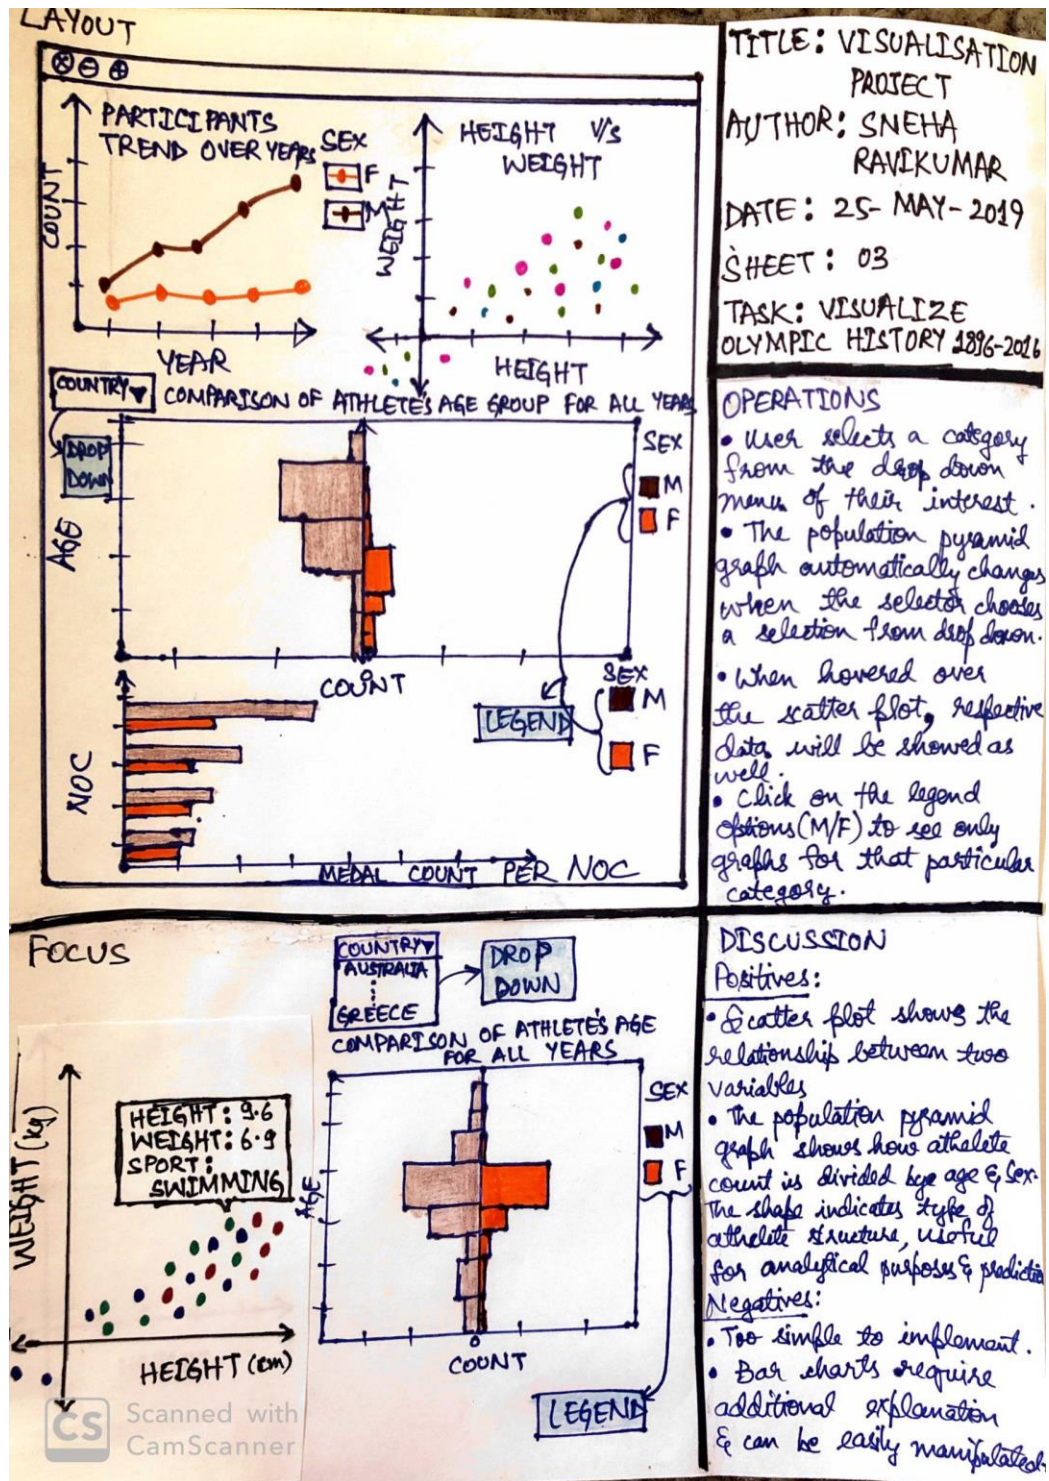 LAYOUT
PARTICIPANTS
TREND OVER YEARS
SEX
F
M
COUNT
YEAR
HEIGHT V/S
WEIGHT
WEIGHT
HEIGHT
COUNTRY
DROP
DOWN
COMPARISON OF ATHLETE'S AGE GROUP FOR ALL YEARS
AGE
COUNT
SEX
M
F
NOC
MEDAL COUNT PER NOC
LEGEND
SEX
M
F
TITLE: VISUALISATION
PROJECT
AUTHOR: SNEHA
RAVIKUMAR
DATE: 25-MAY-2019
SHEET: 03
TASK: VISUALIZE
OLYMPIC HISTORY 1896-2016
OPERATIONS
• User selects a category
from the drop down
menu of their interest.
• The population pyramid
graph automatically changes
when the selector chooses
a selection from drop down.
• When hovered over
the scatter plot, respective
data will be showed as
well.
• Click on the legend
options (M/F) to see only
graphs for that particular
category.
FOCUS
COUNTRY
AUSTRALIA
GREECE
DROP
DOWN
COMPARISON OF ATHLETE'S AGE
FOR ALL YEARS
HEIGHT: 9.6
WEIGHT: 6.9
SPORT:
SWIMMING
WEIGHT (kg)
HEIGHT (cm)
AGE
0
COUNT
SEX
M
F
LEGEND
DISCUSSION
Positives:
• Scatter plot shows the
relationship between two
variables
• The population pyramid
graph shows how athelete
count is divided bye age & sex.
The shape indicates type of
athelete structure, useful
for analytical purposes & predictio
Negatives:
• Too simple to implement.
• Bar charts require
additional explanation
& can be easily manipulated.
CS
Scanned with
CamScanner